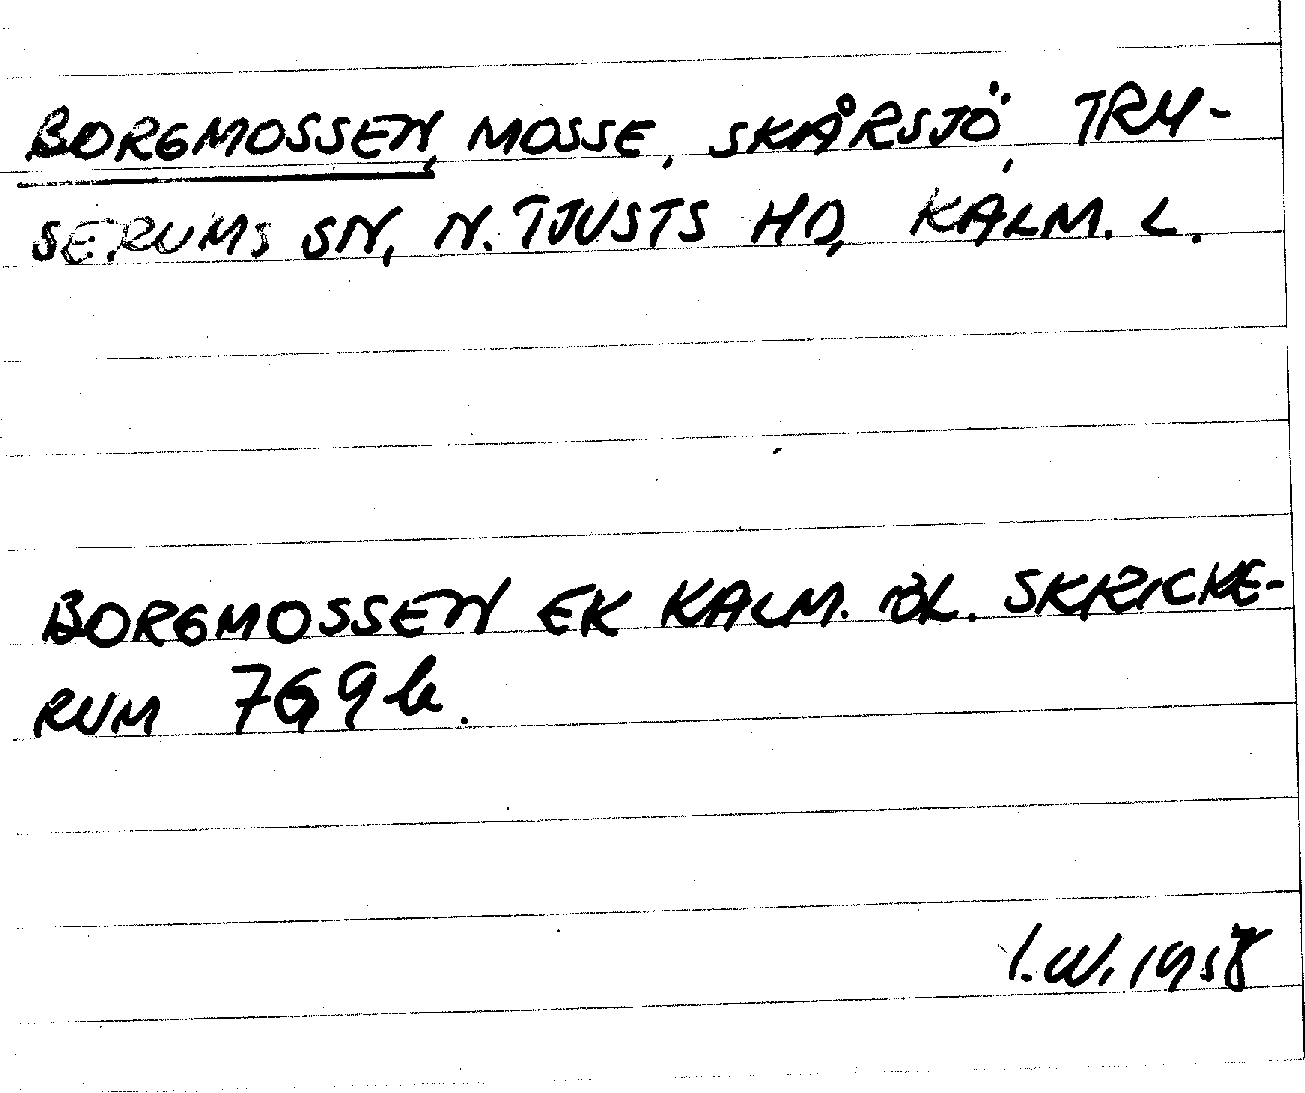 BORGMOSSEN, MOSSE, SKÅRSJÖ, TRY-
SERUMS SN, N. TJUSTS HD, KALM. L.
BORGMOSSEN EK KALM. ÖL. SKRICKE-
RUM 769 b.
I.W. 1958